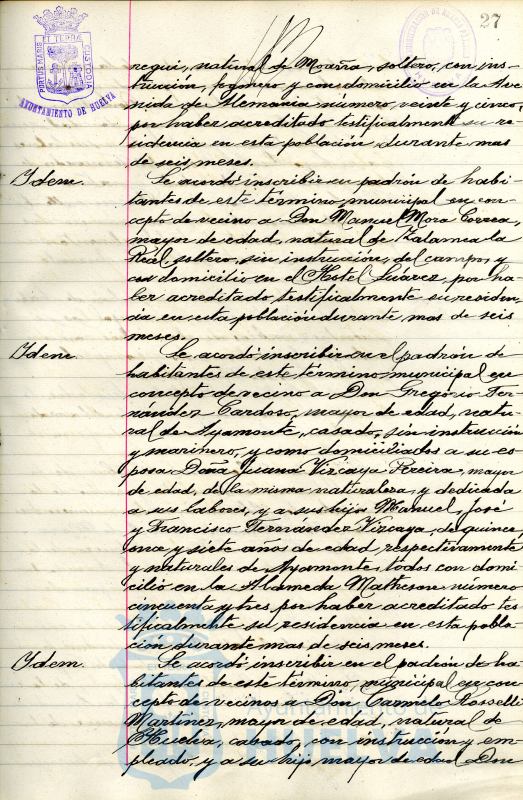 27
PORTUS MARIS ET TERRÆ CUSTODIA
AYUNTAMIENTO DE HUELVA
regui, natural de Moaña, soltero, con ins-
trucción, fogonero y con domicilio en la Ave-
nida de Alemania número veinte y cinco,
por haber acreditado testificalmente su re-
sidencia en esta población durante mas
de seis meses.
Idem. Se acordó inscribir en padrón de habi-
tantes de este término municipal en con-
cepto de vecino a Don Manuel Mora Correa,
mayor de edad, natural de Zalamea la
Real, soltero, sin instrucción, del campo, y
con domicilio en el Hotel Suárez, por ha-
ber acreditado testificalmente su residen-
cia en esta población durante mas de seis
meses.
Idem. Se acordó inscribir en el padrón de
habitantes de este término municipal en
concepto de vecino a Don Gregorio Fer-
nández Cardoso, mayor de edad, natu-
ral de Ayamonte, casado, sin instrucción
y marinero, y como domiciliados a su es-
posa Doña Juana Vizcaya Pereira, mayor
de edad, de la misma naturaleza, y dedicada
a sus labores, y a sus hijos Manuel, José
y Francisco Fernández Vizcaya, de quince,
once y siete años de edad, respectivamente
y naturales de Ayamonte, todos con domi-
cilio en la Alameda Matheson número
cincuenta y tres por haber acreditado tes-
tificalmente su residencia en esta pobla-
ción durante mas de seis meses.
Idem. Se acordó inscribir en el padrón de ha-
bitantes de este término municipal en con-
cepto de vecinos a Don Carmelo Rosselli
Martínez, mayor de edad, natural de
Huelva, casado, con instrucción y em-
pleado, y a su hijo mayor de edad Don
Ayuntamiento de
HUELVA